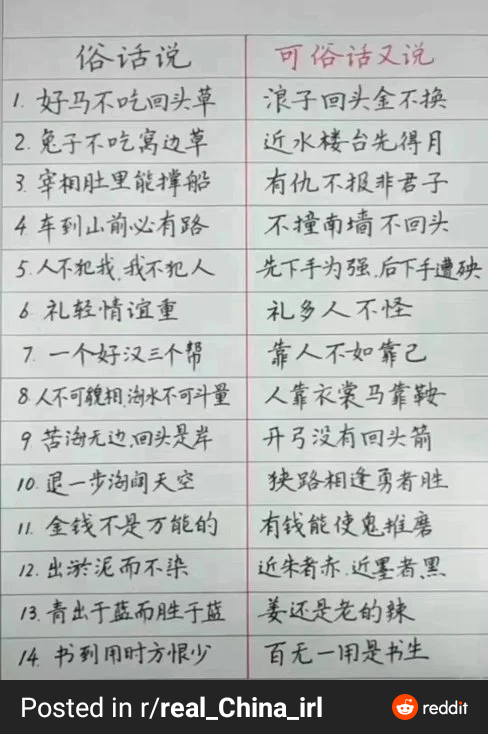 俗话说 可俗话又说
1. 好马不吃回头草 浪子回头金不换
2. 兔子不吃窝边草 近水楼台先得月
3. 宰相肚里能撑船 有仇不报非君子
4 车到山前必有路 不撞南墙不回头
5. 人不犯我,我不犯人 先下手为强,后下手遭殃
6 礼轻情谊重 礼多人不怪
7. 一个好汉三个帮 靠人不如靠己
8. 人不可貌相,海水不可斗量 人靠衣裳马靠鞍
9 苦海无边,回头是岸 开弓没有回头箭
10. 退一步海阔天空 狭路相逢勇者胜
11. 金钱不是万能的 有钱能使鬼推磨
12. 出淤泥而不染 近朱者赤.近墨者黑
13. 青出于蓝而胜于蓝 姜还是老的辣
14. 书到用时方恨少 百无一用是书生
Posted in r/real_China_irl reddit